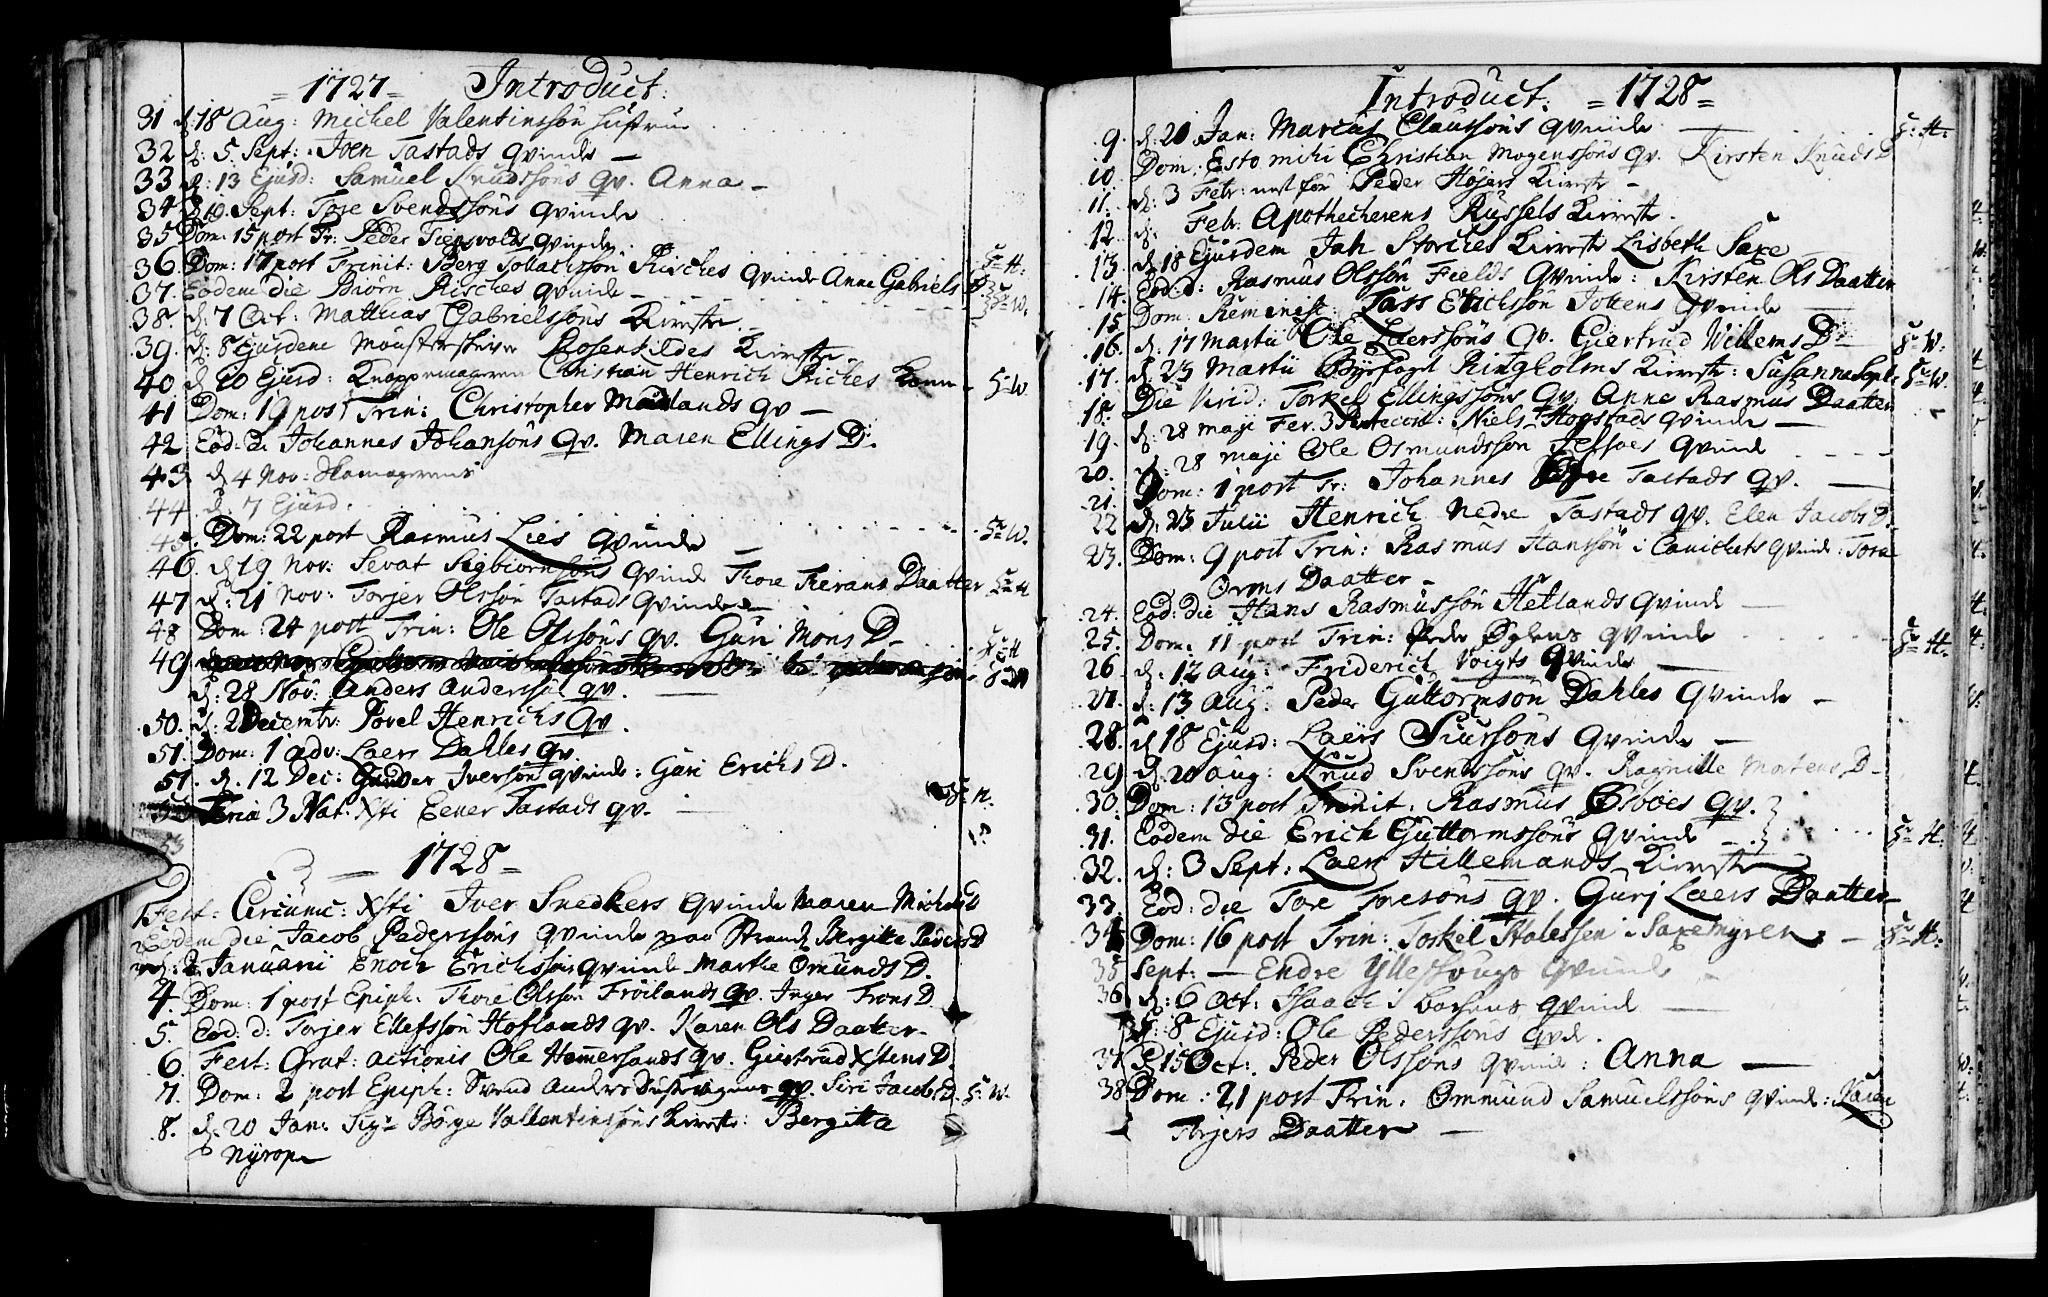 = 1727 = Introduct:
31 d: 18 Aug: Michel Valentinssøn hustrue
32 d: 5 Sept: Iven Tastads qvinde —
33 d: 13 Ejusd: Samuel Knudssøns qv. Anna —
34 Sept: Tore Svendssøns qvinde
35 Dom: 15 post Tr: Peder Tiensvolds qvinde
36. Dom: 17 post Trinit: Berg Tollachssøn Risches qvinde Anne Gabriels D S: H:
37. Eodem die Biørn Risches qvinde — S: W.
38. d: 7 Oct: Matthias Gabrielssøns Kierrste.
39. d: 8 Ejusdem Rosenkildes Kierrste.
40 d 10 Ejusd: Knappemageren Christian Henrich Riches Kone — S: W
41 Dom: 19 post Trin: Christopher Madlands qv —
42 Eod: d. Johannes Johansøns qv. Maren Ellings D.
43. d 4 Nov: Skomagerens
44. d: 7 Ejusd.
45. Dom: 22 post Rasmus Lies qvinde — S: W.
46. d 19 Nov: Sevat Sigbiørnsøns qvinde Thore Daatter S: H
47 d: 21 Nov: Torjer Olssøn Tastads qvinde —
48 Dom: 24 post Trin: Ole Olssøns qv. Guri Mons D — S: H
49
d: 28 Nov: Anders Anderssøn qv. —
50. d: 2 Decembr: Povel Henrichs qv.
51. Dom: 1 adv: Laers Dahles qv
51. d. 12 Dec: Gunder Iversøn qvinde: Guri Erichs D.
Feria 3 Nat: Xsti Eener Tastads qv. — S: H.
53
— 1728 =
1 Fest: Circumc: Xsti Iver Snedkers qvinde Maren Michels D
Eodem die Jacob Pederssøns qvinde paa Strand Bergitte Peders D
d: 2 Januarii Enoch Erichssøns qvinde Marthe Omunds D.
4. Dom: 1 post Epiph: Thore Olssøn Frøilands qv. Inger Trons D.
5. Eod: d: Torjer Ellefssøn Hoflands qv. Karen Ols Daatter.
6. Fest: Grat: actionis Ole Hammersands qv. Giertrud Xstens D.
7. Dom: 2 post Epiph: Svend Anders qv. Siri Jacobs D. S: W.
8. d. 20 Jan: Sigr Børge Vallentinssøns Kierrste: Bergitta
Nyrop
Introduct. = 1728 =
9. d: 20 Jan: Marcus Claussøns qvinde — S: H:
10. Dom: Esto mihi Christian Mogenssøns qv. Kirsten Knuds D
11. d: 3 Febr: Peder Høyers Kierrste —
12 d: Febr. Apothecherens Russels Kierrste.
13. d 18 Ejusdem Jah Storches Kierrste Lisbeth Saxe
14. Eod: d: Rasmus Olssøn Fields qvinde: Kirsten Ols Daatter
15 Dom: Reminisc: Tass Erichsøn Jottens qvinde —
16. d. 17 Martii Ole Laerssøns qv. Giertrud Willems D: — S: W:
17. d. 23 Martii Byefoget Ringholms Kierrste: Susanna S: W.
18. Die Virid: Torkel Ellingssøns qv: Anne Rasmus Daatter
19. d: 28 Maji Fer. 3 Pentecost: Niels Hogstads qvinde —
20. d: 28 Maji Ole Osmundssøn qvinde
21. Dom: 1 post Tr: Johannes Tastads qv. —
22 d: 23 Julii Henrich Nedre Tastads qv. Elen Jacobs D.
23. Dom: 9 post Trin: Rasmus Hanssøn i qvinde: Tora
Orms Daatter —
24. Eod: die Hans Rasmussøn Hetlands qvinde —
25. Dom: 11 post Trin: Peder Øglens qvinde S: H:
26. d. 12 Aug: Friderich Voigts qvinde —
27. d: 13 Aug: Peder Guttormsøn Dahles qvinde —
28. d 18 Ejusd: Laers Siursøns qvinde —
29 d 20 Aug: Knud Svendssøns qv. Ragnille Mortens D —
30. Dom: 13 post Trinit: Rasmus qv.
31. Eodem die Erich Guttormssøns qvinde — S: H:
32. d: 3 Sept: Laers Hillemands Kierrste
33. Eod: die Tore Toresøns qv. Gurj Laers Daatter —
34 Dom: 16 post Trin: Torkel Stolessen i Saxemyren. — S: H:
35 Sept: — Endre Ytteshougs qvinde —
36 d: 6 Oct: Isaach i qvinde —
d: 8 Ejusd: Ole Pederssøns qvde.
37 d 15 Oct: Peder Olssøns qvinde: Anna —
38 Dom: 21 post Trin. Ommund Samuelssøns qvinde: Karen
Torjers Daatter —